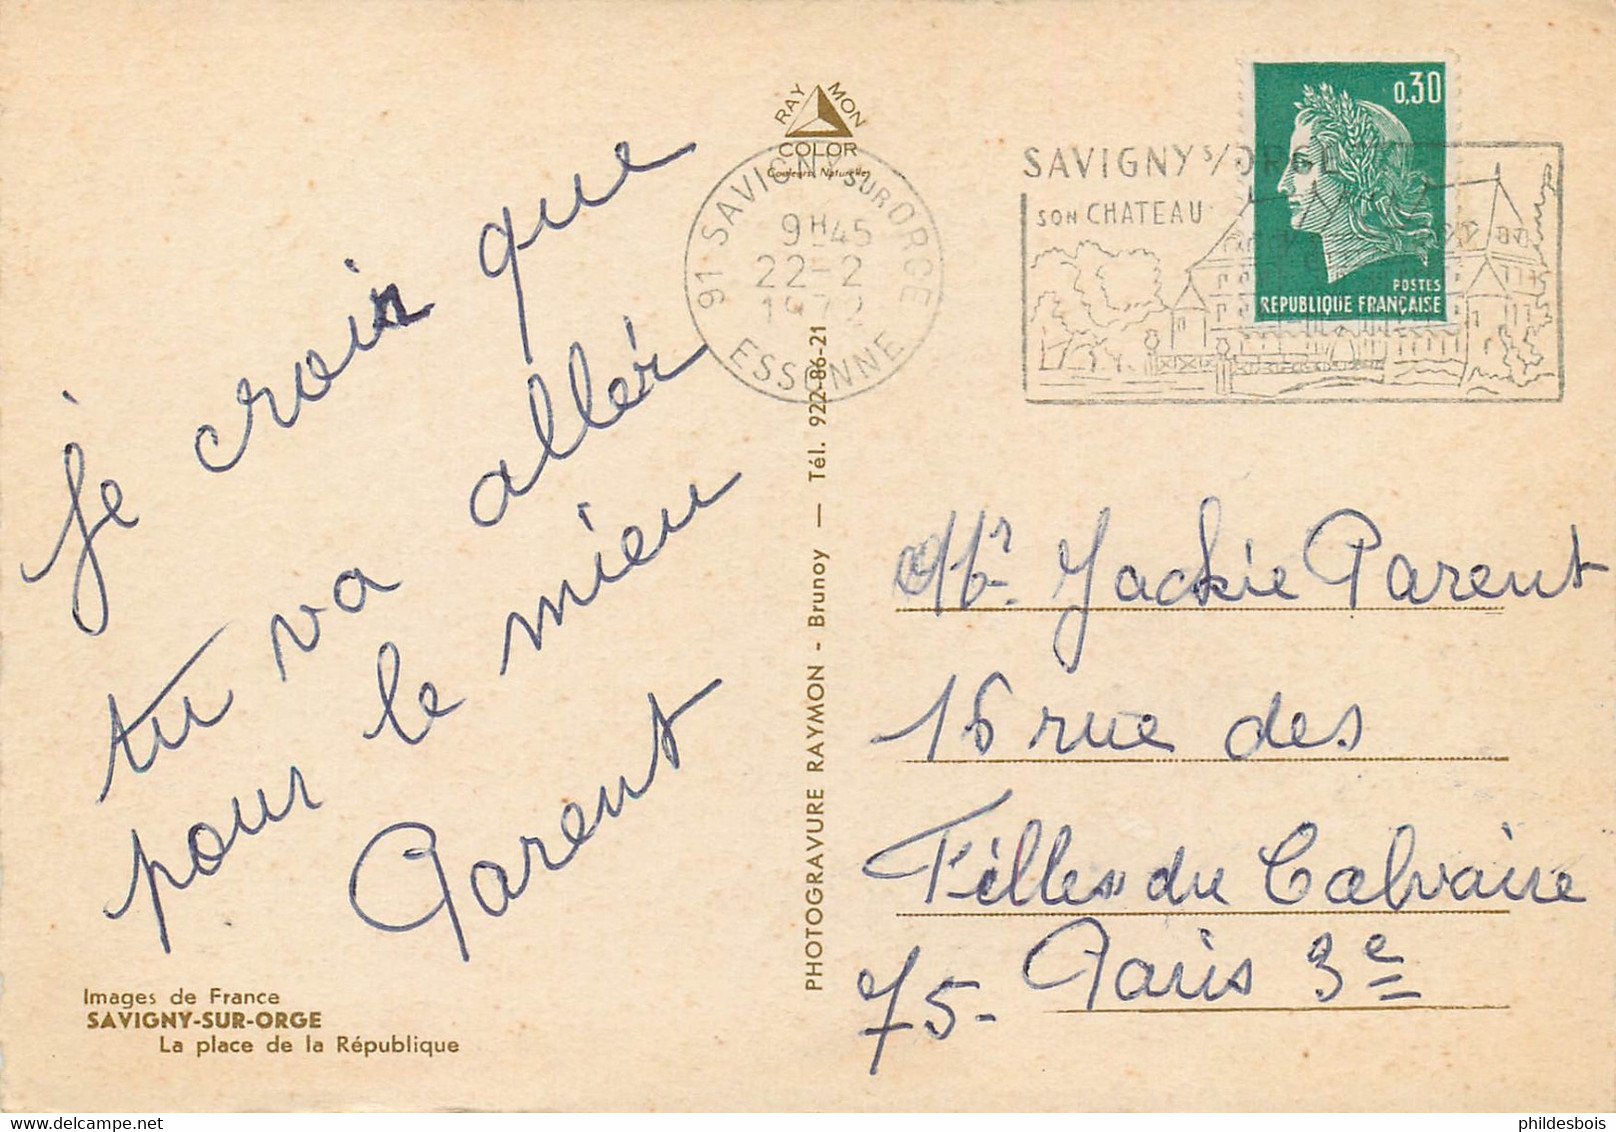 Je croir que
tu va aller
pour le mieu
Parent
Images de France
SAVIGNY-SUR-ORGE
La place de la République
PHOTOGRAVURE RAYMON - Brunoy — Tél. 922-86-21
RAY MON
COLOR
Couleurs Naturelles
91 SAVIGNY SUR ORGE
9H45
22-2
1972
ESSONNE
SAVIGNY S/ORGE
SON CHATEAU
0,30
POSTES
REPUBLIQUE FRANÇAISE
Mr. Jackie Parent
16 rue des
Filles du Calvaire
75- Paris 3e
phildesbois